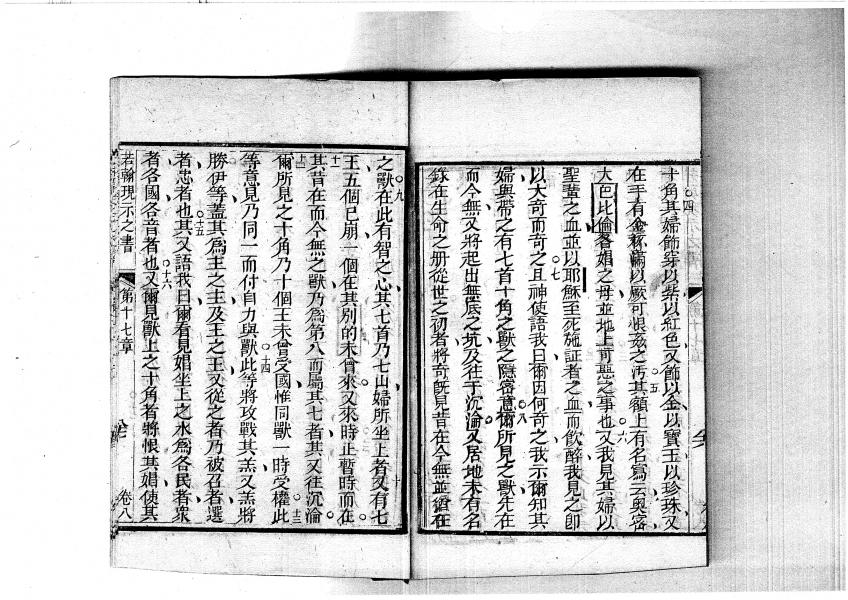 十角其婦飾穿以紫以紅色又飾以金以寶玉以珍珠又
○四
在手有金杯滿以厥可恨姦之污其額上有名寫云奧密
○五
大巴比倫各娼之母並地上可惡之事也又我見其婦以
○六
聖輩之血並以耶穌至死施証者之血而飲醉我見之即
以大奇而奇之且神使語我曰爾因何奇之我示爾知其
○七
婦與帶之有七首十角之獸之隱密意爾所見之獸先在
○八
而今無又將起出無底之坑及往于沉淪又居地未有名
錄在生命之册從世之初者將奇旣見昔在今無並猶在
之獸在此有智之心其七首乃七山婦所坐上者又有七
○九
十
王五個已崩一個在其別的未曾來又來時止暫時而在
十一
其昔在而今無之獸乃為第八而屬其七者其又往沉淪
爾所見之十角乃十個王未曾受國惟同獸一時受權此
十二
○十三
等意見乃同一而付自力與獸此等將攻戰其羔又羔將
○十四
勝伊等蓋其為王之主及王之王又從之者乃被召者選
者忠者也其又語我曰爾看見娼坐上之水為各民者眾
○十五
者各國各音者也又爾見獸上之十角者將恨其娼使其
○十六
若翰現示之書
第十七章
卷八